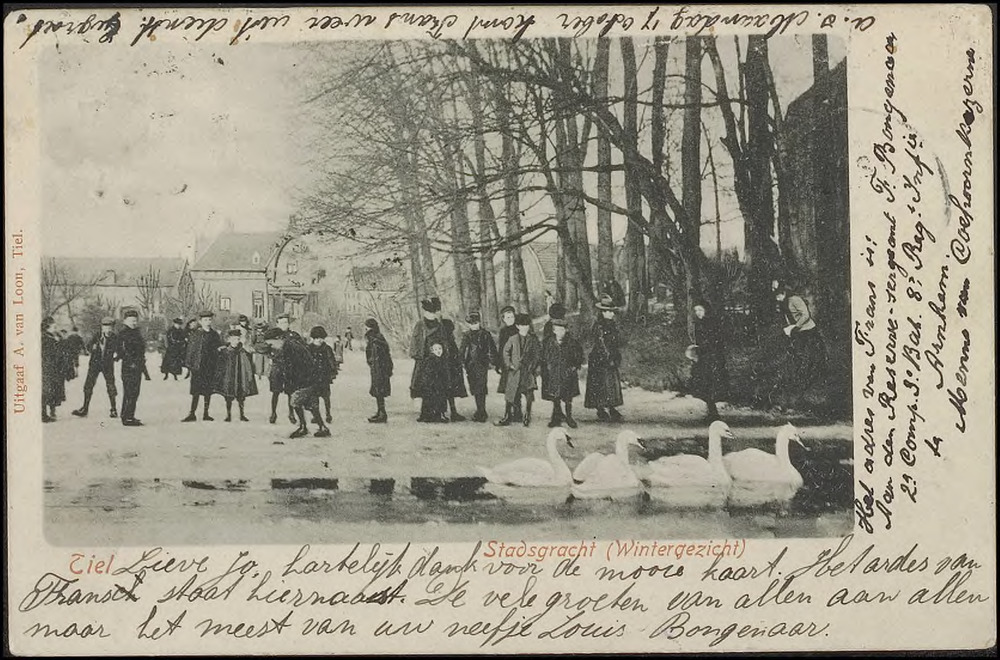 a.s. Maandag 17 October komt Frans weer uit dienst. Gegroet
Uitgaaf A. van Loon, Tiel.
Tiel Stadsgracht (Wintergezicht)
Lieve Jo, hartelijk dank voor de mooie kaart. Het ardes van
Fransch staat hiernaast. De vele groeten van allen aan allen
maar het meest van uw neefje Louis Bongenaar.
Het adres van Frans is:
Aan den Reserve-sergeant F. Bongenaar
2e Comp. 3e Bat. 8e Reg. Infie
te Arnhem.
Menno van Coehoornkazerne